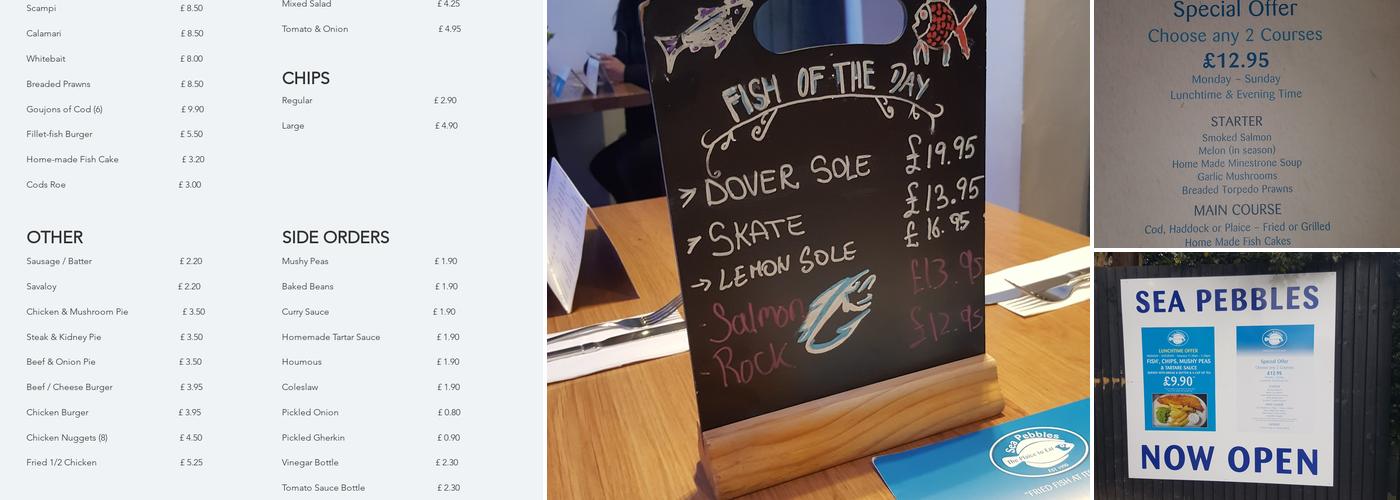 Scampi £ 8.50
Calamari £ 8.50
Whitebait £ 8.00
Breaded Prawns £ 8.50
Goujons of Cod (6) £ 9.90
Fillet-fish Burger £ 5.50
Home-made Fish Cake £ 3.20
Cods Roe £ 3.00
OTHER
Sausage / Batter £ 2.20
Savaloy £ 2.20
Chicken & Mushroom Pie £ 3.50
Steak & Kidney Pie £ 3.50
Beef & Onion Pie £ 3.50
Beef / Cheese Burger £ 3.95
Chicken Burger £ 3.95
Chicken Nuggets (8) £ 4.50
Fried 1/2 Chicken £ 5.25
Mixed Salad £ 4.25
Tomato & Onion £ 4.95
CHIPS
Regular £ 2.90
Large £ 4.90
SIDE ORDERS
Mushy Peas £ 1.90
Baked Beans £ 1.90
Curry Sauce £ 1.90
Homemade Tartar Sauce £ 1.90
Houmous £ 1.90
Coleslaw £ 1.90
Pickled Onion £ 0.80
Pickled Gherkin £ 0.90
Vinegar Bottle £ 2.30
Tomato Sauce Bottle £ 2.30
FISH OF THE DAY
DOVER SOLE £19.95
SKATE £13.95
LEMON SOLE £16.95
Salmon £13.95
Rock £12.95
Sea Pebbles
The Plaice to Eat
EST 1990
"FRIED FISH AT IT
Special Offer
Choose any 2 Courses
£12.95
Monday – Sunday
Lunchtime & Evening Time
STARTER
Smoked Salmon
Melon (in season)
Home Made Minestrone Soup
Garlic Mushrooms
Breaded Torpedo Prawns
MAIN COURSE
Cod, Haddock or Plaice – Fried or Grilled
Home Made Fish Cakes
SEA PEBBLES
LUNCHTIME OFFER
FISH, CHIPS, MUSHY PEAS
& TARTARE SAUCE
£9.90
Special Offer
Choose any 2 Courses
£12.95
NOW OPEN